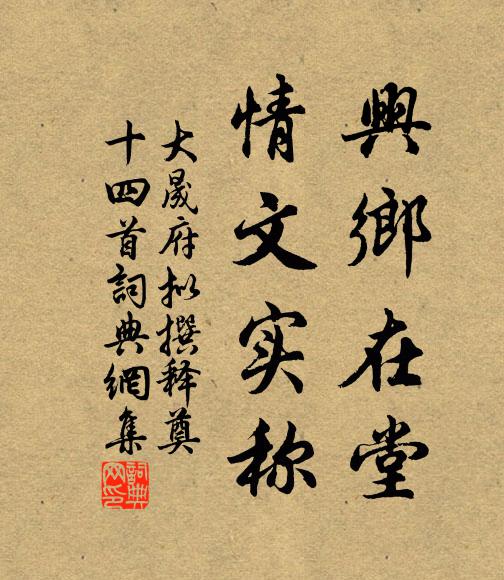 興鄉在堂
情文实称
大晟府拟撰释奠
十四首詞典網集
詞典网印